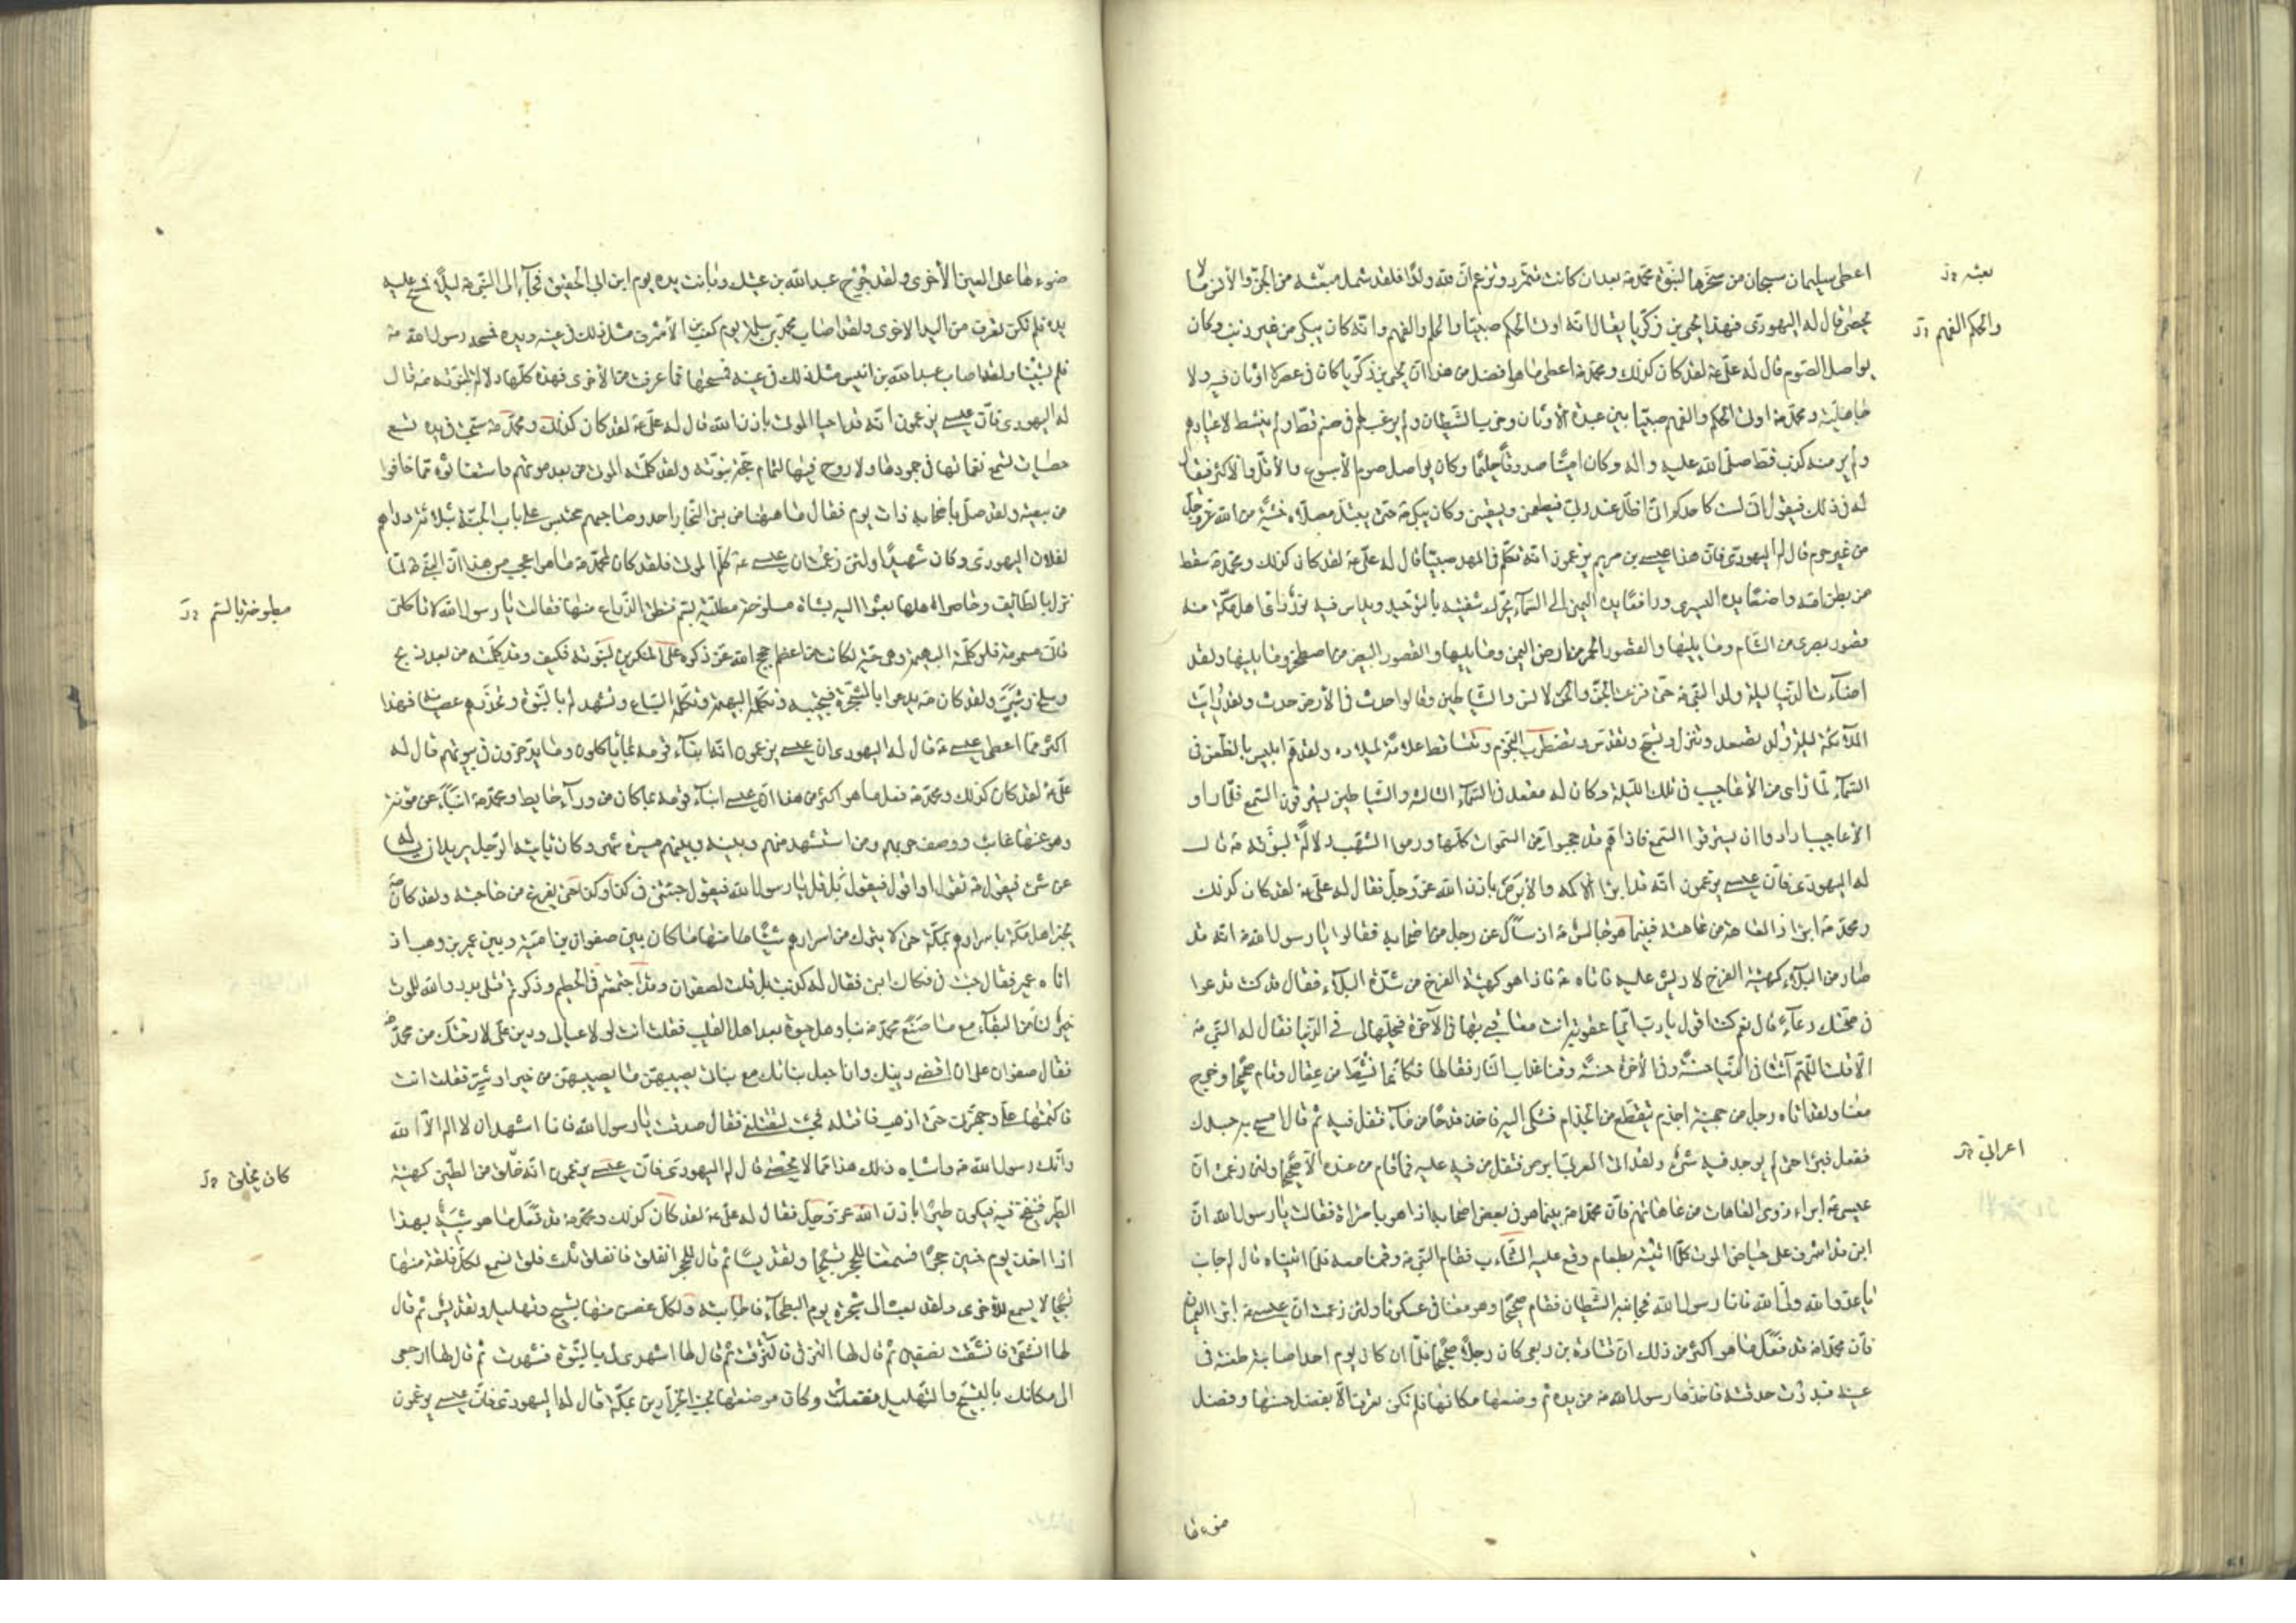 اعطى سليمان سبحان من سخرها لنبوة محمد ص بعد ان كانت تتمرد وتزعم ان لله ولدا فلقد شمل مبعثه من الجن والانس ما لا
يحصى قال له اليهودى فهذا يحيى بن زكريا يقال انه اوتى الحكم صبيا والحلم والفهم وانه كان يبكى من غير ذنب وكان
يواصل الصوم قال له على ع لقد كان كذلك ومحمد ص اعطى ما هو افضل من هذا ان يحيى بن زكريا كان فى عصر لا اوثان فيه ولا
جاهلية ومحمد ص اوتى الحكم والفهم صبيا بين عبدة الاوثان وحزب الشيطان ولم يرغب لهم فى صنم قط ولم ينشط لاعيادهم
ولم ير منه كذب قط صلى الله عليه واله وكان امينا صدوقا حليما وكان يواصل صوم الاسبوع والاقل والاكثر فيقال
له فى ذلك فيقول انى لست كاحدكم انى اظل عند ربى فيطعمنى ويسقينى وكان يبكى ص حتى يبتل مصلاه خشية من الله عز وجل
من غير جرم قال له اليهودى فان هذا عيسى بن مريم يزعمون انه تكلم فى المهد صبيا قال له على ع لقد كان كذلك ومحمد ص سقط
من بطن امه واضعا يده اليسرى ورافعا يده اليمنى الى السماء يحرك شفتيه بالتوحيد وبدا من فيه نور راى اهل مكة منه
قصور بصرى من الشام وما يليها والقصور الحمر من ارض اليمن وما يليها والقصور البيض من اصطخر وما يليها ولقد
اضاءت الدنيا ليلة ولد النبى ص حتى فزعت الجن والانس والشياطين وقالوا حدث فى الارض حدث ولقد رايت
الملائكة ليلة ولد تصعد وتنزل وتسبح وتقدس وتضطرب النجوم وتتساقط علامة لميلاده ولقد هم ابليس بالظعن فى
السماء لما راى من الاعاجيب فى تلك الليلة وكان له مقعد فى السماء الثالثة والشياطين يسترقون السمع فلما راوا
الاعاجيب ارادوا ان يسترقوا السمع فاذا هم قد حجبوا من السموات كلها ورموا بالشهب دلالة لنبوته ص قال
له اليهودى فان عيسى يزعمون انه قد ابرا الاكمه والابرص باذن الله عز وجل فقال له على ع لقد كان كذلك
ومحمد ص ابرا ذا العاهة من عاهته فبينما هو جالس ص اذ سال عن رجل من اصحابه فقالوا يا رسول الله ص انه قد
صار من البلاء كهيئة الفرخ لا ريش عليه فاتاه ع فاذا هو كهيئة الفرخ من شدة البلاء فقال قد كنت تدعوا
فى صحتك دعاء قال نعم كنت اقول يا رب ايما عقوبة انت معاقبى بها فى الاخرة فعجلها لى فى الدنيا فقال له النبى ص
الا قلت اللهم آتنا فى الدنيا حسنة وفى الاخرة حسنة وقنا عذاب النار فقالها فكانما نشط من عقال وقام صحيحا وخرج
معنا ولقد اتاه رجل من جهينة اجذم يتقطع من الجذام فشكى اليه فاخذ قدحا من ماء فتفل فيه ثم قال امسح به جسدك
ففعل فبرئ حتى لم يوجد فيه شئ ولقد اتى العربى ابرص فتفل من فيه عليه فما قام من عنده الا صحيحا ولئن زعمت ان
عيسى ع ابراء ذوى العاهات من عاهاتهم فان محمدا ص بينما هو فى بعض اصحابه اذا هو بامراة فقالت يا رسول الله ان
ابنى قد اشرف على حياض الموت كلما اتيته بطعام وقع عليه التثاءب فقام النبى ص وقمنا معه فلما اتيناه قال له جانب
يا عدو الله ولى الله فانا رسول الله فجانبه الشيطان فقام صحيحا وهو معنا فى عسكرنا ولئن زعمت ان عيسى ع ابرا العميان
فان محمدا ص قد فعل ما هو اكثر من ذلك ان قتادة بن ربعى كان رجلا صحيحا فلما ان كان يوم احد اصابته طعنة فى
عينه فبدرت حدقته فاخذها رسول الله ص من يده ثم وضعها مكانها فلم تكن تعرف الا بفضل حسنها وفضل
ضوءها
بعثه
والحكم الفهم
اعرابى
ضوءها على العين الاخرى ولقد جرح عبد الله بن عتيك وبانت يده يوم ابن ابى الحقيق فجاء الى النبى ص ليلا فمسح عليه
يده فلم تكن تعرف من اليد الاخرى ولقد اصاب محمد بن مسلمة يوم كعب بن الاشرف مثل ذلك فى عينه ويده فمسحه رسول الله ص
فلم تستبينا ولقد اصاب عبد الله بن انيس مثل ذلك فى عينه فمسحها فما عرفت من الاخرى فهذه كلها دلالة لنبوته ص قال
له اليهودى فان عيسى يزعمون انه قد احيا الموتى باذن الله قال له على ع لقد كان كذلك ومحمد ص سبحت فى يده تسع
حصيات تسمع نغماتها فى جمودها ولا روح فيها لتمام حجة نبوته ولقد كلمته الموتى من بعد موتهم واستغاثوه مما خافوا
من تبعته ولقد صلى باصحابه ذات يوم فقال ما هاهنا من بنى النجار احد وصاحبهم محتبس على باب الجنة بثلاثة دراهم
لفلان اليهودى وكان شهيدا ولئن زعمت ان عيسى ع كلم الموتى فلقد كان لمحمد ص ما هو اعجب من هذا ان النبى ص لما
نزل بالطائف وحاصر اهلها بعثوا اليه بشاة مسلوخة مطلية بسم فنطق الذراع منها فقالت يا رسول الله لا تاكلنى
فانى مسمومة فلو كلمته البهيمة وهى حية لكانت من اعظم حجج الله عز ذكره على المنكرين لنبوته فكيف وقد كلمته من بعد ذبح
وسلخ وشى ولقد كان ص يدعوا بالشجرة فتجيبه وتكلمه البهيمة وتكلمه السباع وتشهد له بالنبوة وتحذرهم عصيانه فهذا
اكثر مما اعطى عيسى ع قال له اليهودى ان عيسى يزعمون انه انباء قومه بما ياكلون وما يدخرون فى بيوتهم قال له
على ع لقد كان كذلك ومحمد ص فعل ما هو اكثر من هذا ان عيسى انباء قومه بما كان من وراء حايط ومحمد ص انباء عن موتة
وهو عنها غائب ووصف حربهم ومن استشهد منهم وبينه وبينهم مسيرة شهور وكان ياتيه الرجل يريد ان يساله
عن شئ فيقول ص تقول او اقول فيقول بل قل يا رسول الله فيقول جئتنى فى كذا وكذا حتى يفرغ من حاجته ولقد كان ص
يخبر اهل مكة باسرارهم بمكة حتى لا يترك من اسرارهم شيئا منها ما كان بين صفوان بن امية وبين عمير بن وهب اذ
اتاه عمير فقال جئت فى فكاك ابنى فقال له كذبت بل قلت لصفوان وقد اجتمعتم فى الحطيم وذكرتم قتلى بدر والله للموت
خير لنا من البقاء مع ما صنع محمد ص بنا وهل حيوة بعد اهل القليب فقلت انت لولا عيالى ودين على لارحتك من محمد ص
فقال صفوان على ان اقضى دينك وان اجعل بناتك مع بناتى يصيبهن ما يصيبهن من خير او شر فقلت انت
فاكتمها على وجهزنى حتى اذهب فاقتله فجئت لتقتلنى فقال صدقت يا رسول الله فانا اشهد ان لا اله الا الله
وانك رسول الله ص واشباه ذلك هذا مما لا يحصى قال له اليهودى فان عيسى يزعمون انه خلق من الطين كهيئة
الطير فنفخ فيه فيكون طيرا باذن الله عز وجل فقال له على ع لقد كان كذلك ومحمد ص قد فعل ما هو شبيه بهذا
اذا اخذ يوم حنين حجرا فسمعنا للحجر تسبيحا وتقديسا ثم قال للحجر انفلق فانفلق ثلث فلق نسمع لكل فلقة منها
تسبيحا لا يسمع للاخرى ولقد بعث الى شجرة يوم البطحاء فاجابته ولكل غصن منها تسبيح وتهليل وتقديس ثم قال
لها انشقى فانشقت نصفين ثم قال لها التزقى فالتزقت ثم قال لها اشهدى لى بالنبوة فشهدت ثم قال لها ارجعى
الى مكانك بالتسبيح والتهليل ففعلت وكان موضعها بجنب الجزارين بمكة قال له اليهودى فان عيسى يزعمون
مطبوخة بالسم
كان يخلق